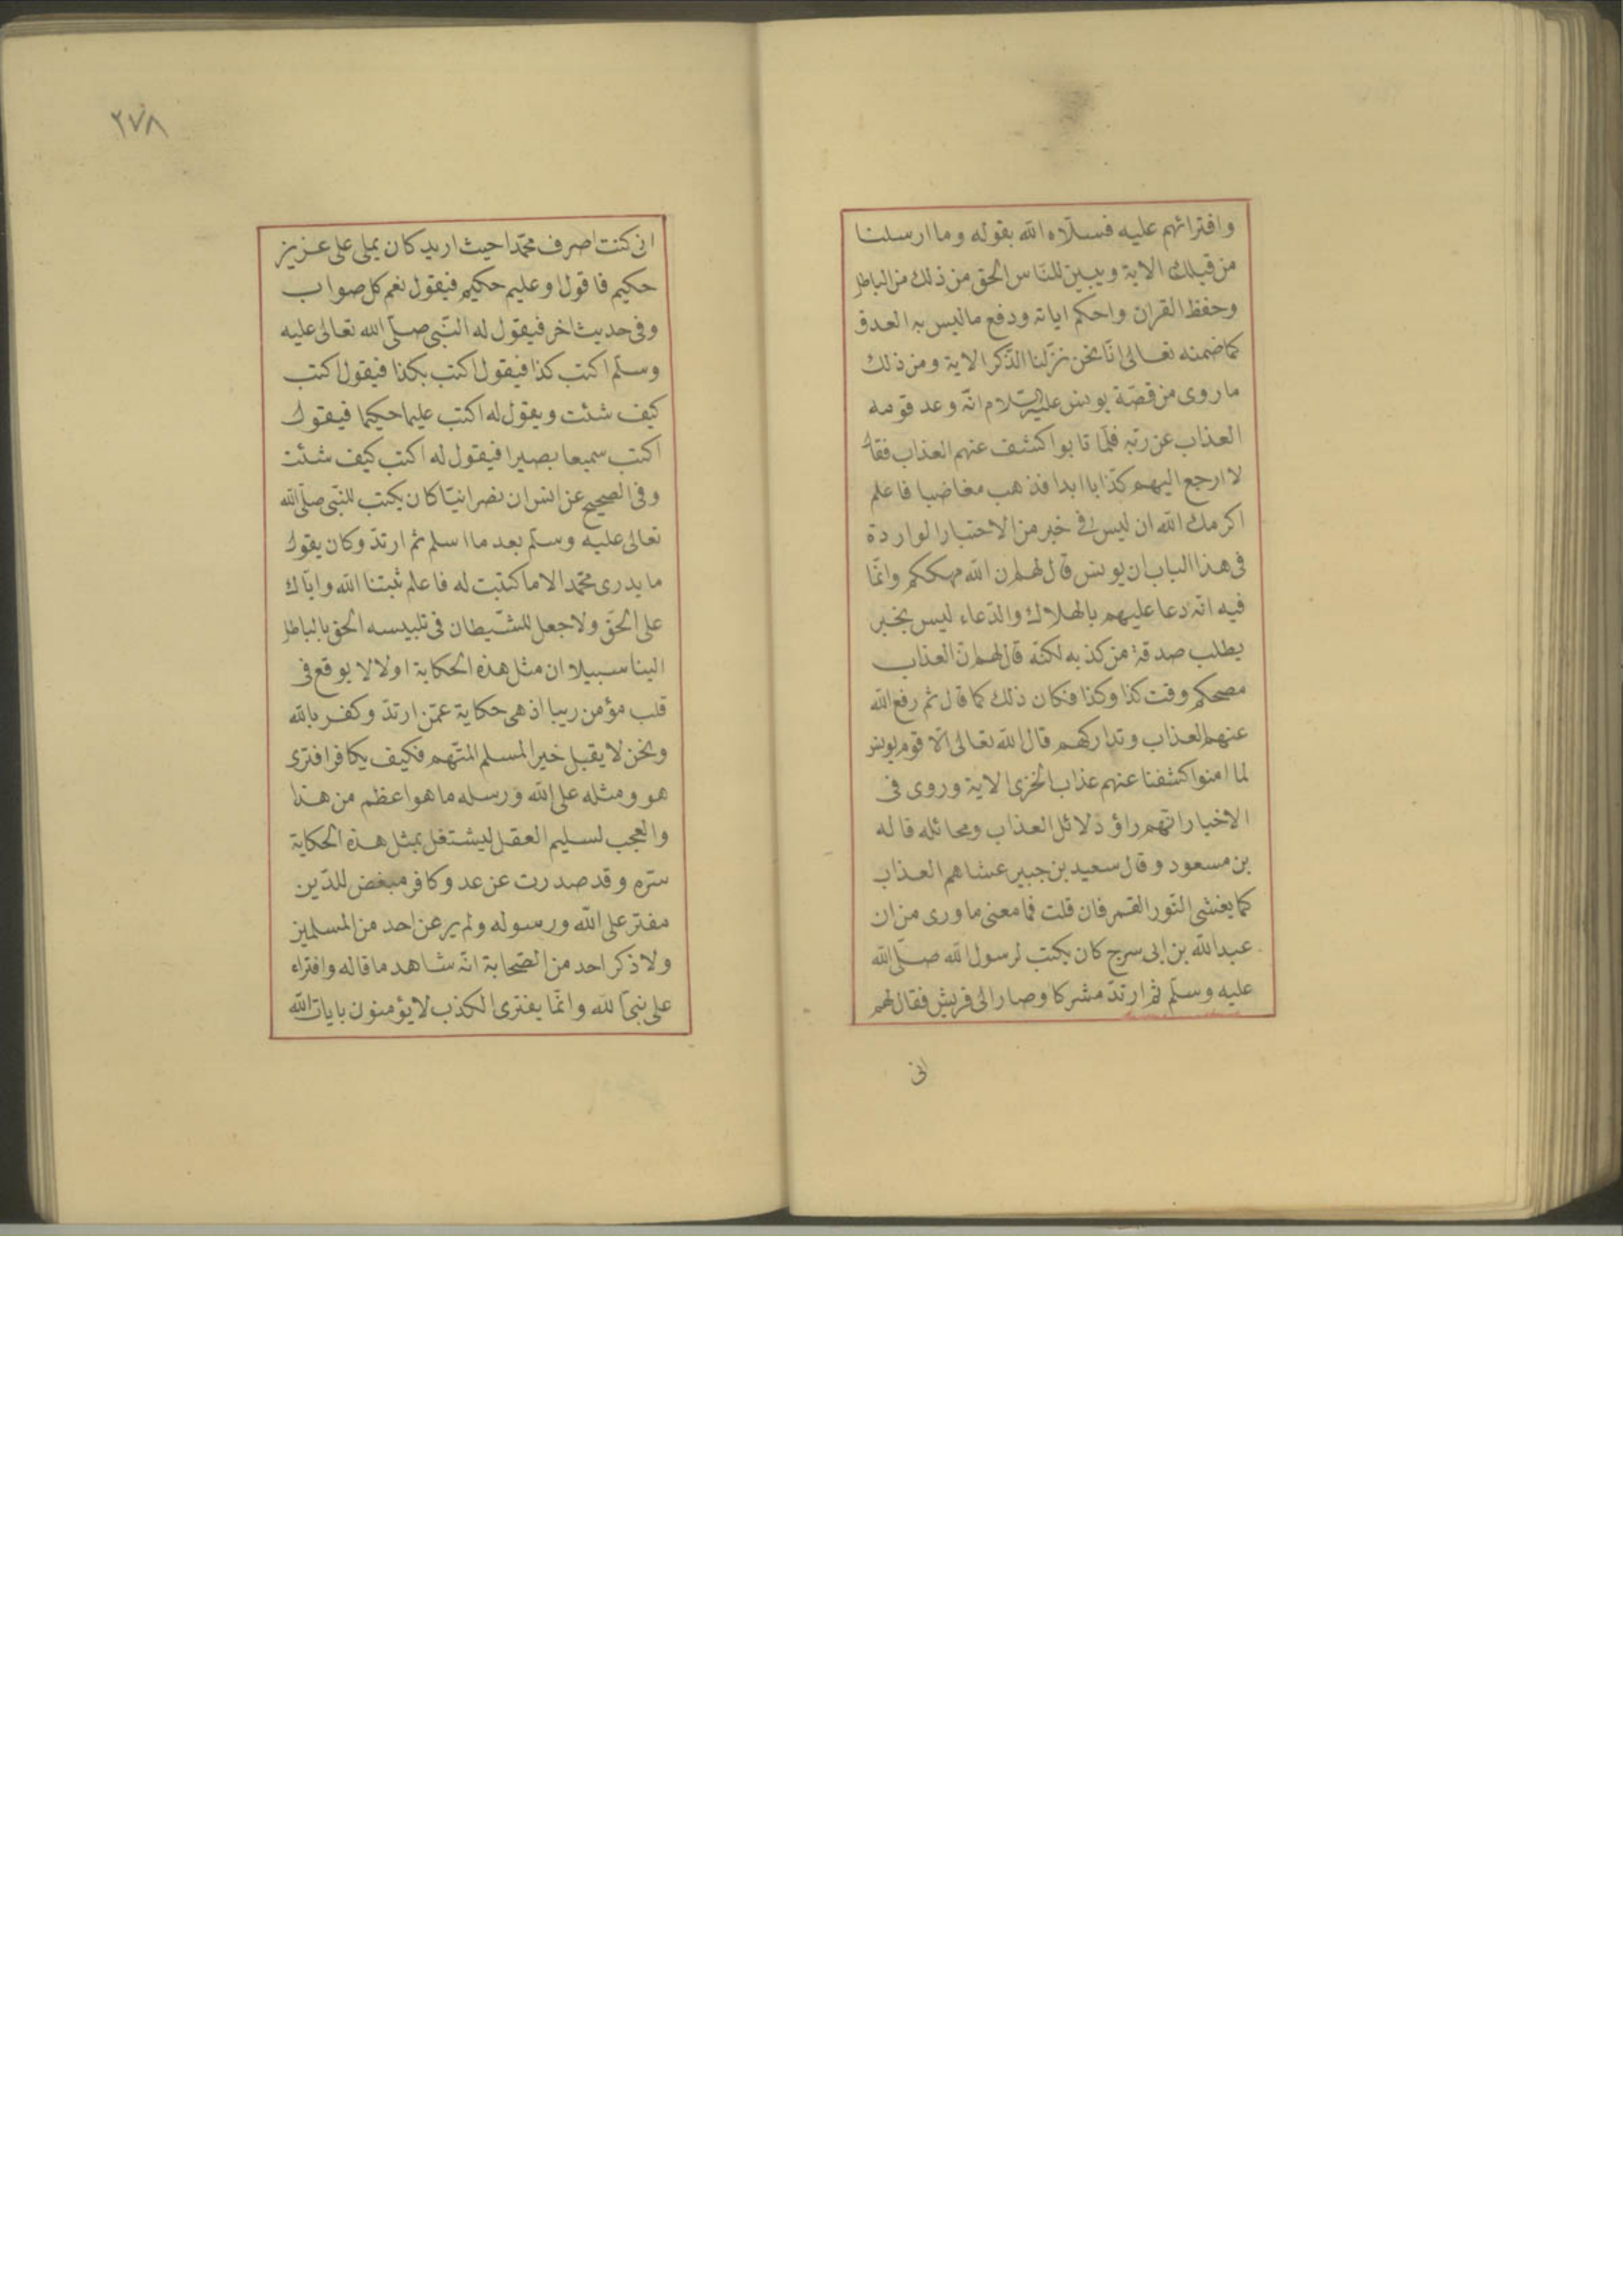 وافترائهم عليه فسلاه الله بقوله وما ارسلنا
من قبلك الاية ويبين للناس الحق من ذلك من الباطل
وحفظ القران واحكم اياته ودفع ماليس به العدو
كما ضمنه تعالى انا نحن نزلنا الذكر الاية ومن ذلك
ما روى من قصة يونس عليه السلام انه وعد قومه
العذاب عن ربه فلما تابوا كشف عنهم العذاب فقال
لا ارجع اليهم كذابا ابدا فذهب مغاضبا فاعلم
اكرمك الله ان ليس في خبر من الاخبار الواردة
فى هذا الباب ان يونس قال لهم ان الله مهلككم وانما
فيه انه دعا عليهم بالهلاك والدعاء ليس بخبر
يطلب صدقه من كذبه لكنه قال لهم ان العذاب
مصبحكم وقت كذا وكذا فكان ذلك كما قال ثم رفع الله
عنهم العذاب وتداركهم قال الله تعالى الا قوم يونس
لما امنوا كشفنا عنهم عذاب الخزى الاية وروى فى
الاخبار انهم راؤ دلائل العذاب ومخائله قاله
بن مسعود وقال سعيد بن جبير غشاهم العذاب
كما يغشى الثور القمر فان قلت فما معنى ما ورى من ان
عبد الله بن ابى سرح كان يكتب لرسول الله صلى الله
عليه وسلم ثم ارتد مشركا وصار الى قريش فقال لهم
انى
٢٧٨
انى كنت اصرف محمدا حيث اريد كان يملى على عزيز
حكيم فاقول او عليم حكيم فيقول نعم كل صواب
وفى حديث اخر فيقول له النبى صلى الله تعالى عليه
وسلم اكتب كذا فيقول اكتب بكذا فيقول اكتب
كيف شئت ويقول له اكتب عليما حكيما فيقول
اكتب سميعا بصيرا فيقول له اكتب كيف شئت
وفى الصحيح عن انس ان نصرانيا كان يكتب للنبى صلى الله
تعالى عليه وسلم بعد ما اسلم ثم ارتد وكان يقول
ما يدرى محمد الا ما كتبت له فاعلم ثبتنا الله واياك
على الحق ولا جعل للشيطان فى تلبيسه الحق بالباطل
الينا سبيلا ان مثل هذه الحكاية اولا لا يوقع فى
قلب مؤمن ريبا اذ هى حكاية عمن ارتد وكفر بالله
ونحن لا يقبل خبر المسلم المتهم فكيف بكافر افترى
هو ومثله على الله ورسله ما هو اعظم من هذا
والعجب لسليم العقل ليشتغل بمثل هذه الحكاية
سره وقد صدرت عن عدو كافر مبغض للدين
مفتر على الله ورسوله ولم ير عن احد من المسلمين
ولا ذكر احد من الصحابة انه شاهد ما قاله وافتراه
على نبى الله وانما يفترى الكذب لا يؤمنون بايات الله